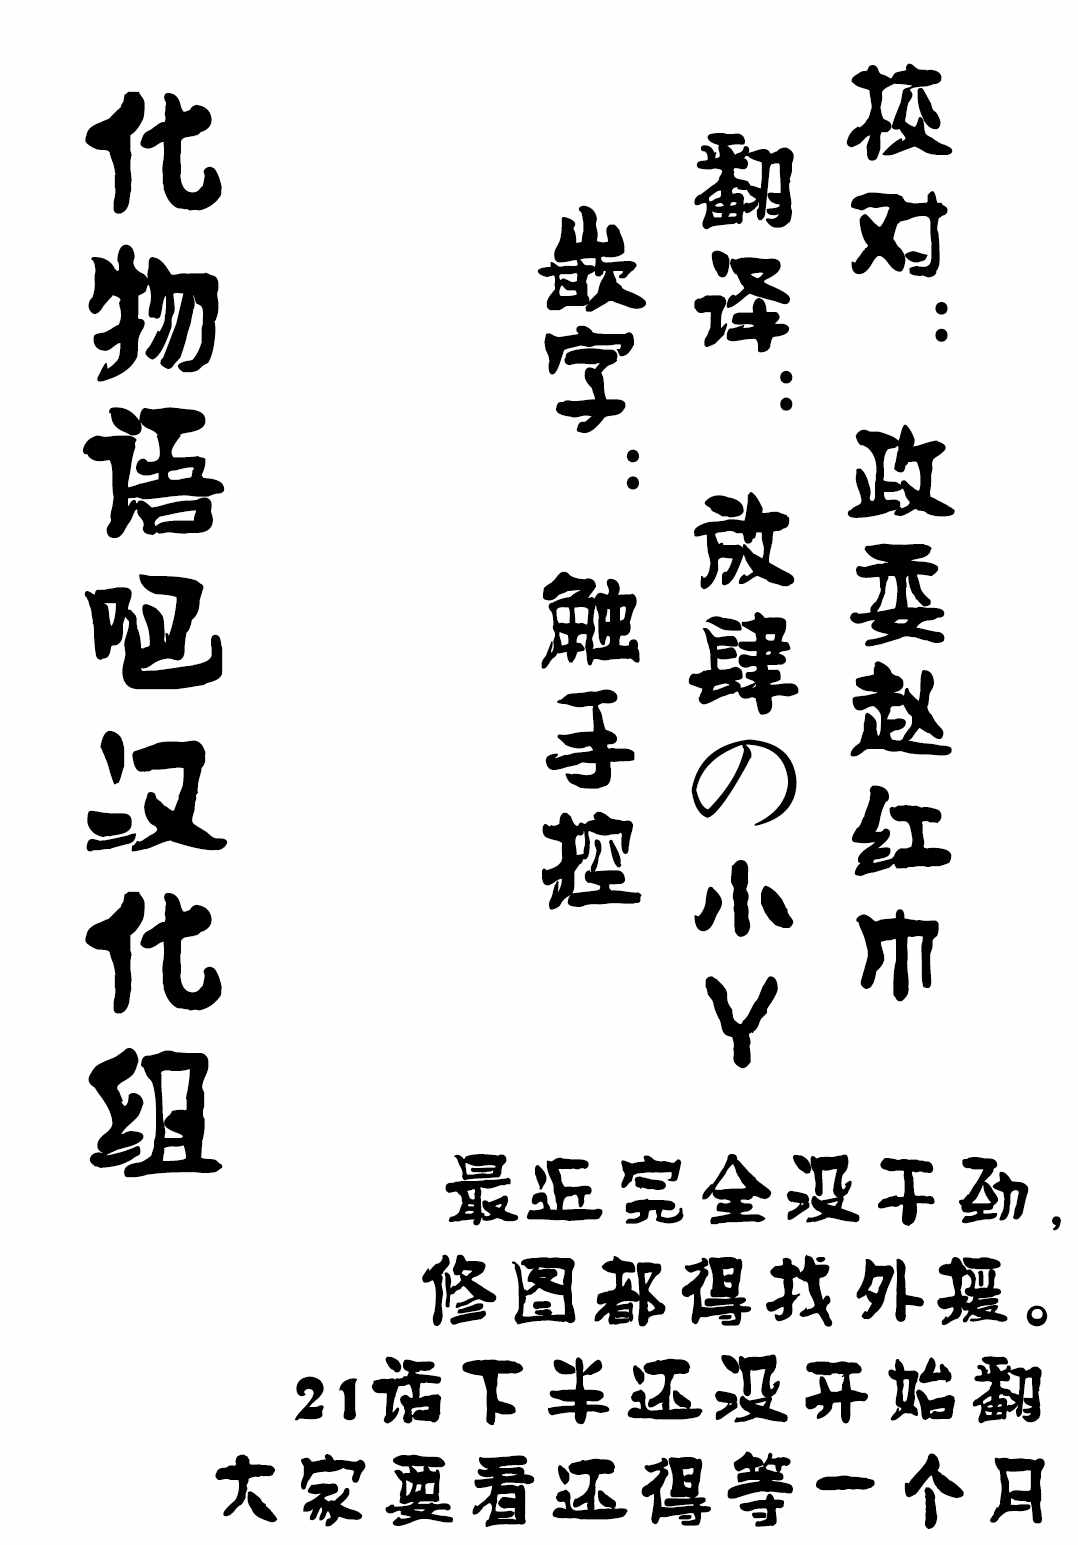 校对：政委赵红巾
翻译：放肆の小Y
嵌字：触手控
化物语吧汉化组
最近完全没干劲,
修图都得找外援。
21话下半还没开始翻
大家要看还得等一个月